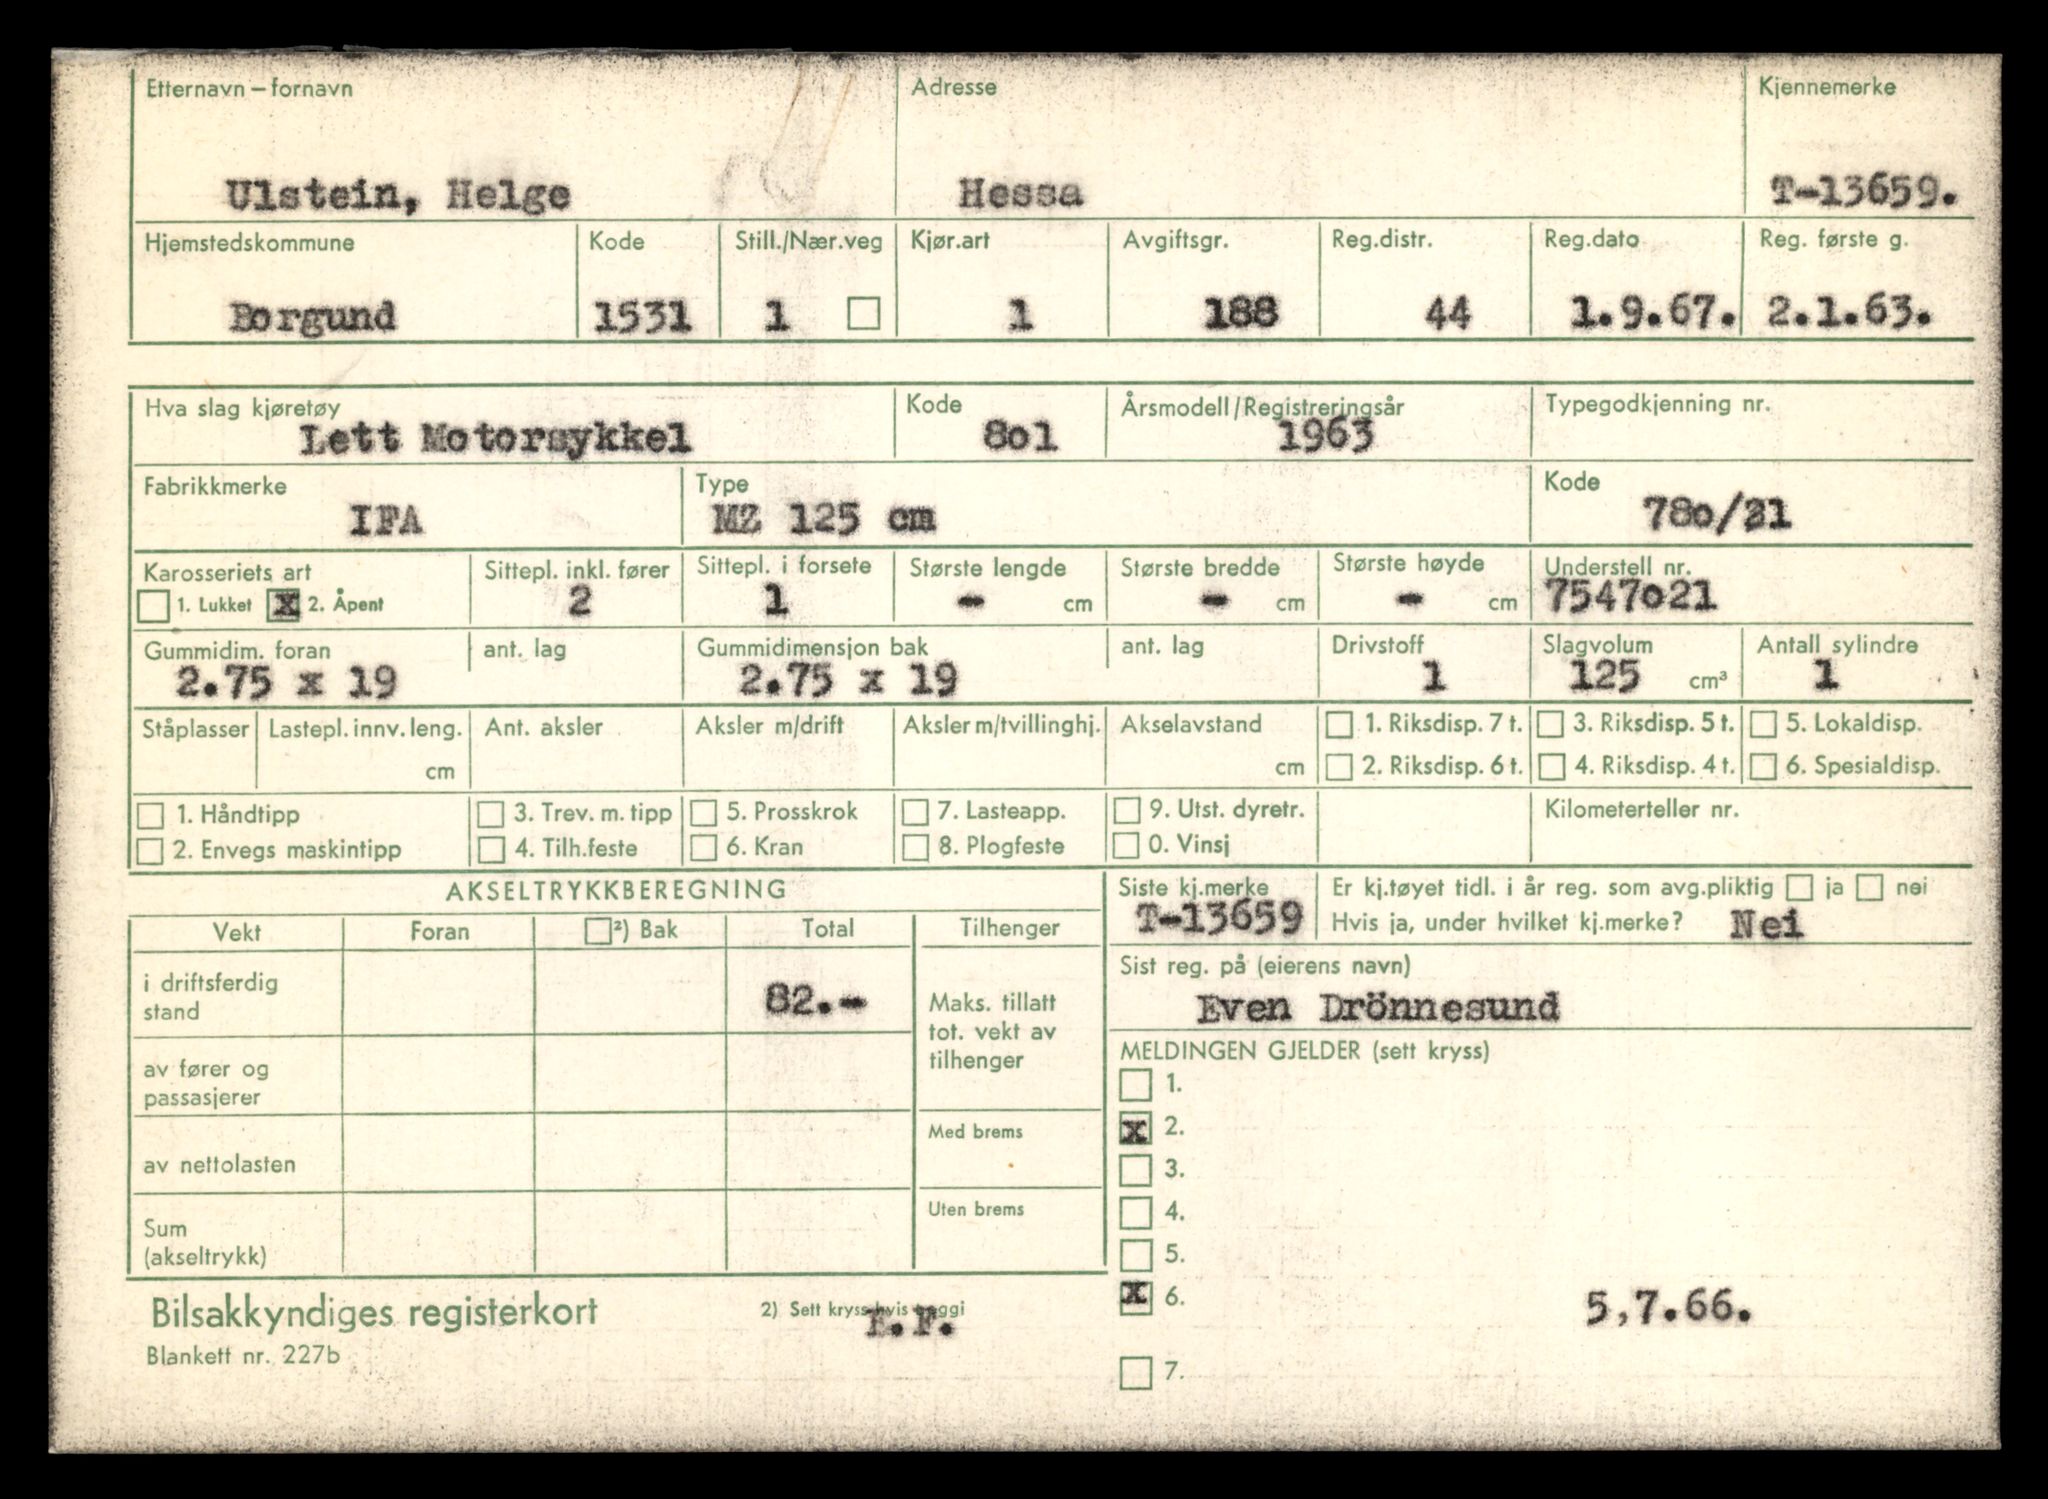 Etternavn – fornavn Adresse Kjennemerke
Ulstein, Helge Hessa T-13659.
Hjemstedskommune Kode Still./Nær.veg Kjør.art Avgiftsgr. Reg.distr. Reg.dato Reg. første g.
Borgund 1531 1 1 188 44 1.9.67. 2.1.63.
Hva slag kjøretøy Kode Årsmodell/Registreringsår Typegodkjenning nr.
Lett Motorsykkel 8o1 1963
Fabrikkmerke Type Kode
IFA MZ 125 cm 78o/21
Karosseriets art Sittepl. inkl. fører Sittepl. i forsete Største lengde Største bredde Største høyde Understell nr.
1. Lukket x 2. Åpent 2 1 - cm - cm - cm 7547o21
Gummidim. foran ant. lag Gummidimensjon bak ant. lag Drivstoff Slagvolum Antall sylindre
2.75 x 19 2.75 x 19 1 125 cm³ 1
Ståplasser Lastepl. innv. leng. Ant. aksler Aksler m/drift Aksler m/tvillinghj. Akselavstand 1. Riksdisp. 7 t. 3. Riksdisp. 5 t. 5. Lokaldisp.
cm cm 2. Riksdisp. 6 t. 4. Riksdisp. 4 t. 6. Spesialdisp.
1. Håndtipp 3. Trev. m. tipp 5. Prosskrok 7. Lasteapp. 9. Utst. dyretr. Kilometerteller nr.
2. Envegs maskintipp 4. Tilh.feste 6. Kran 8. Plogfeste 0. Vinsj
AKSELTRYKKBEREGNING Siste kj.merke Er kj.tøyet tidl. i år reg. som avg.pliktig ja nei
T-13659 Hvis ja, under hvilket kj.merke? Nei
Vekt Foran ²) Bak Total Tilhenger
Sist reg. på (eierens navn)
Even Drönnesund
i driftsferdig
stand 82.-
Maks. tillatt
tot. vekt av
tilhenger
av fører og
passasjerer
Med brems
av nettolasten
Uten brems
Sum
(akseltrykk)
MELDINGEN GJELDER (sett kryss)
1.
x 2.
3.
4.
5.
x 6. 5,7.66.
7.
Bilsakkyndiges registerkort 2) Sett kryss hvis boggi
Blankett nr. 227b